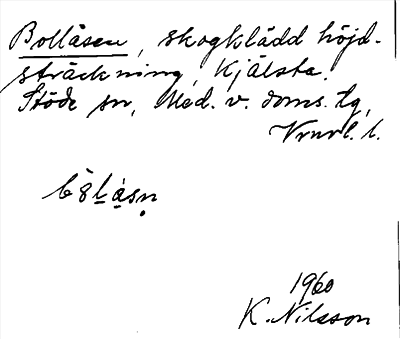 Bollåsen, skogklädd höjd-
sträckning, Kjälsta.
Stöde sn, Med. v. doms. tg,
Vnrl. l.
1960
K. Nilsson